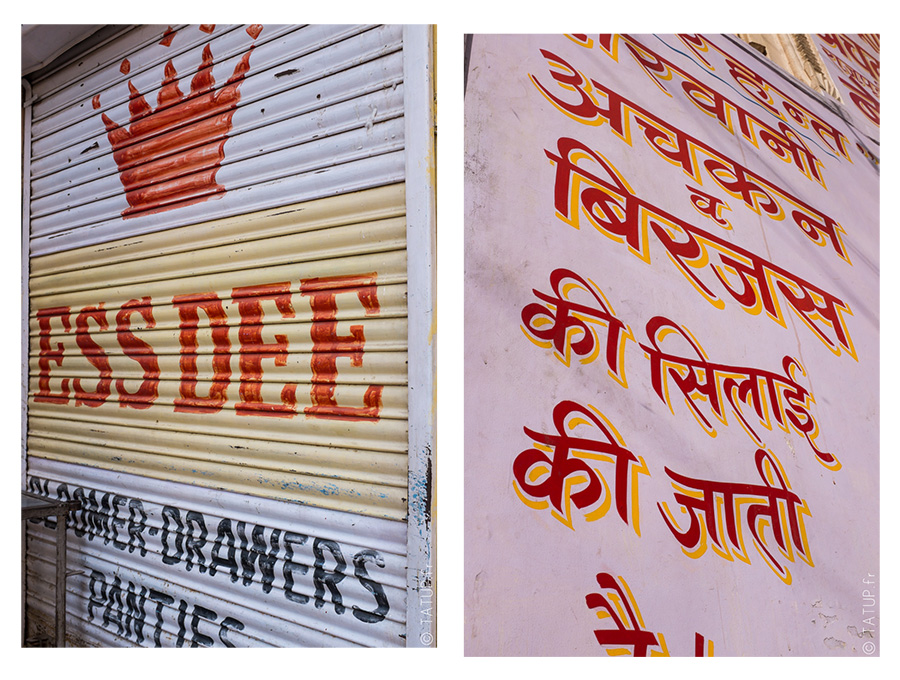 ESS DEE
BLOOMER-DRAWERS
PANTIES
© TATUP.fr
तुरन्त
शेरवानी
अचकन
व
बिरजस
की सिलाई
की जाती
है।
© TATUP.fr